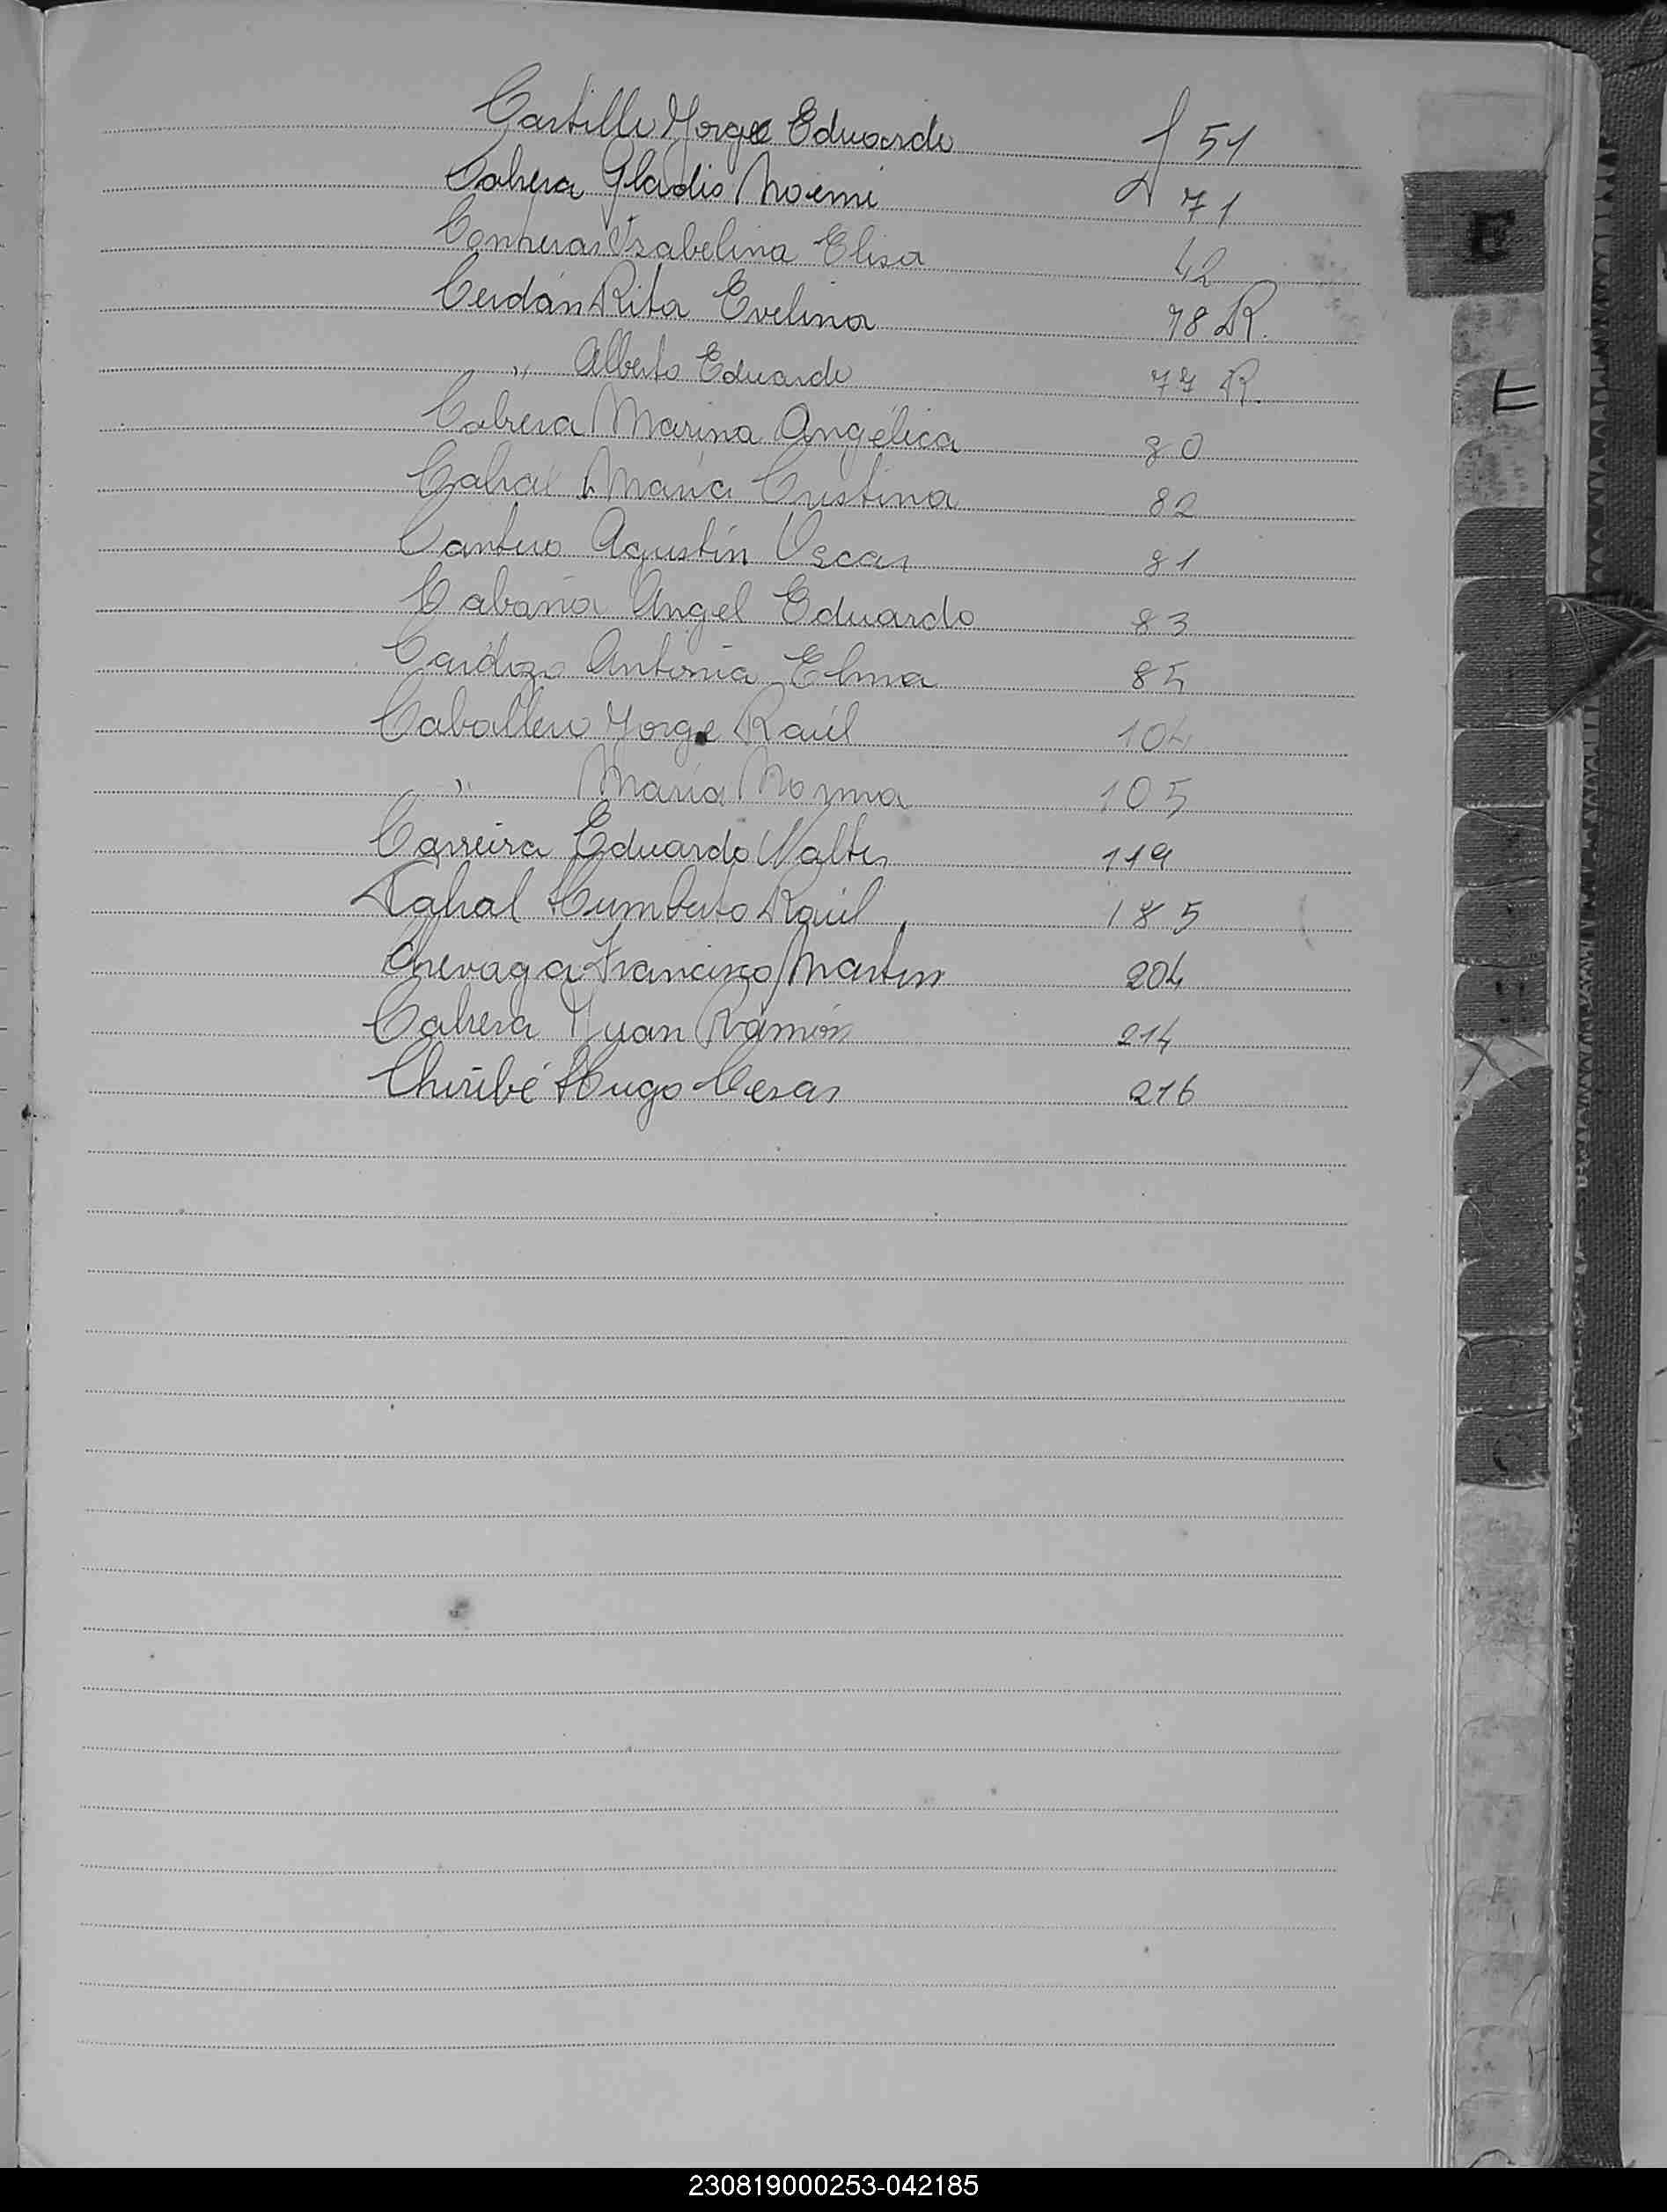 Castillo Jorge Eduardo f 51
Cabrera Gladis Noemi f 71
Contreras Isabelina Elisa 42
Cerdán Rita Evelina 78 R.
" Alberto Eduardo 77 R.
Cabrera Marina Angélica 80
Cabral María Cristina 82
Cantero Agustín Oscar 81
Cabaña Angel Eduardo 83
Cardozo Antonia Elma 85
Caballero Jorge Raúl 104
" María Norma 105
Carreira Eduardo Walter 119
Cabral Humberto Raúl 185
Francisco Martin 204
Cabrera Juan Ramón 214
Chiribé Hugo Cesar 216
E
230819000253-042185